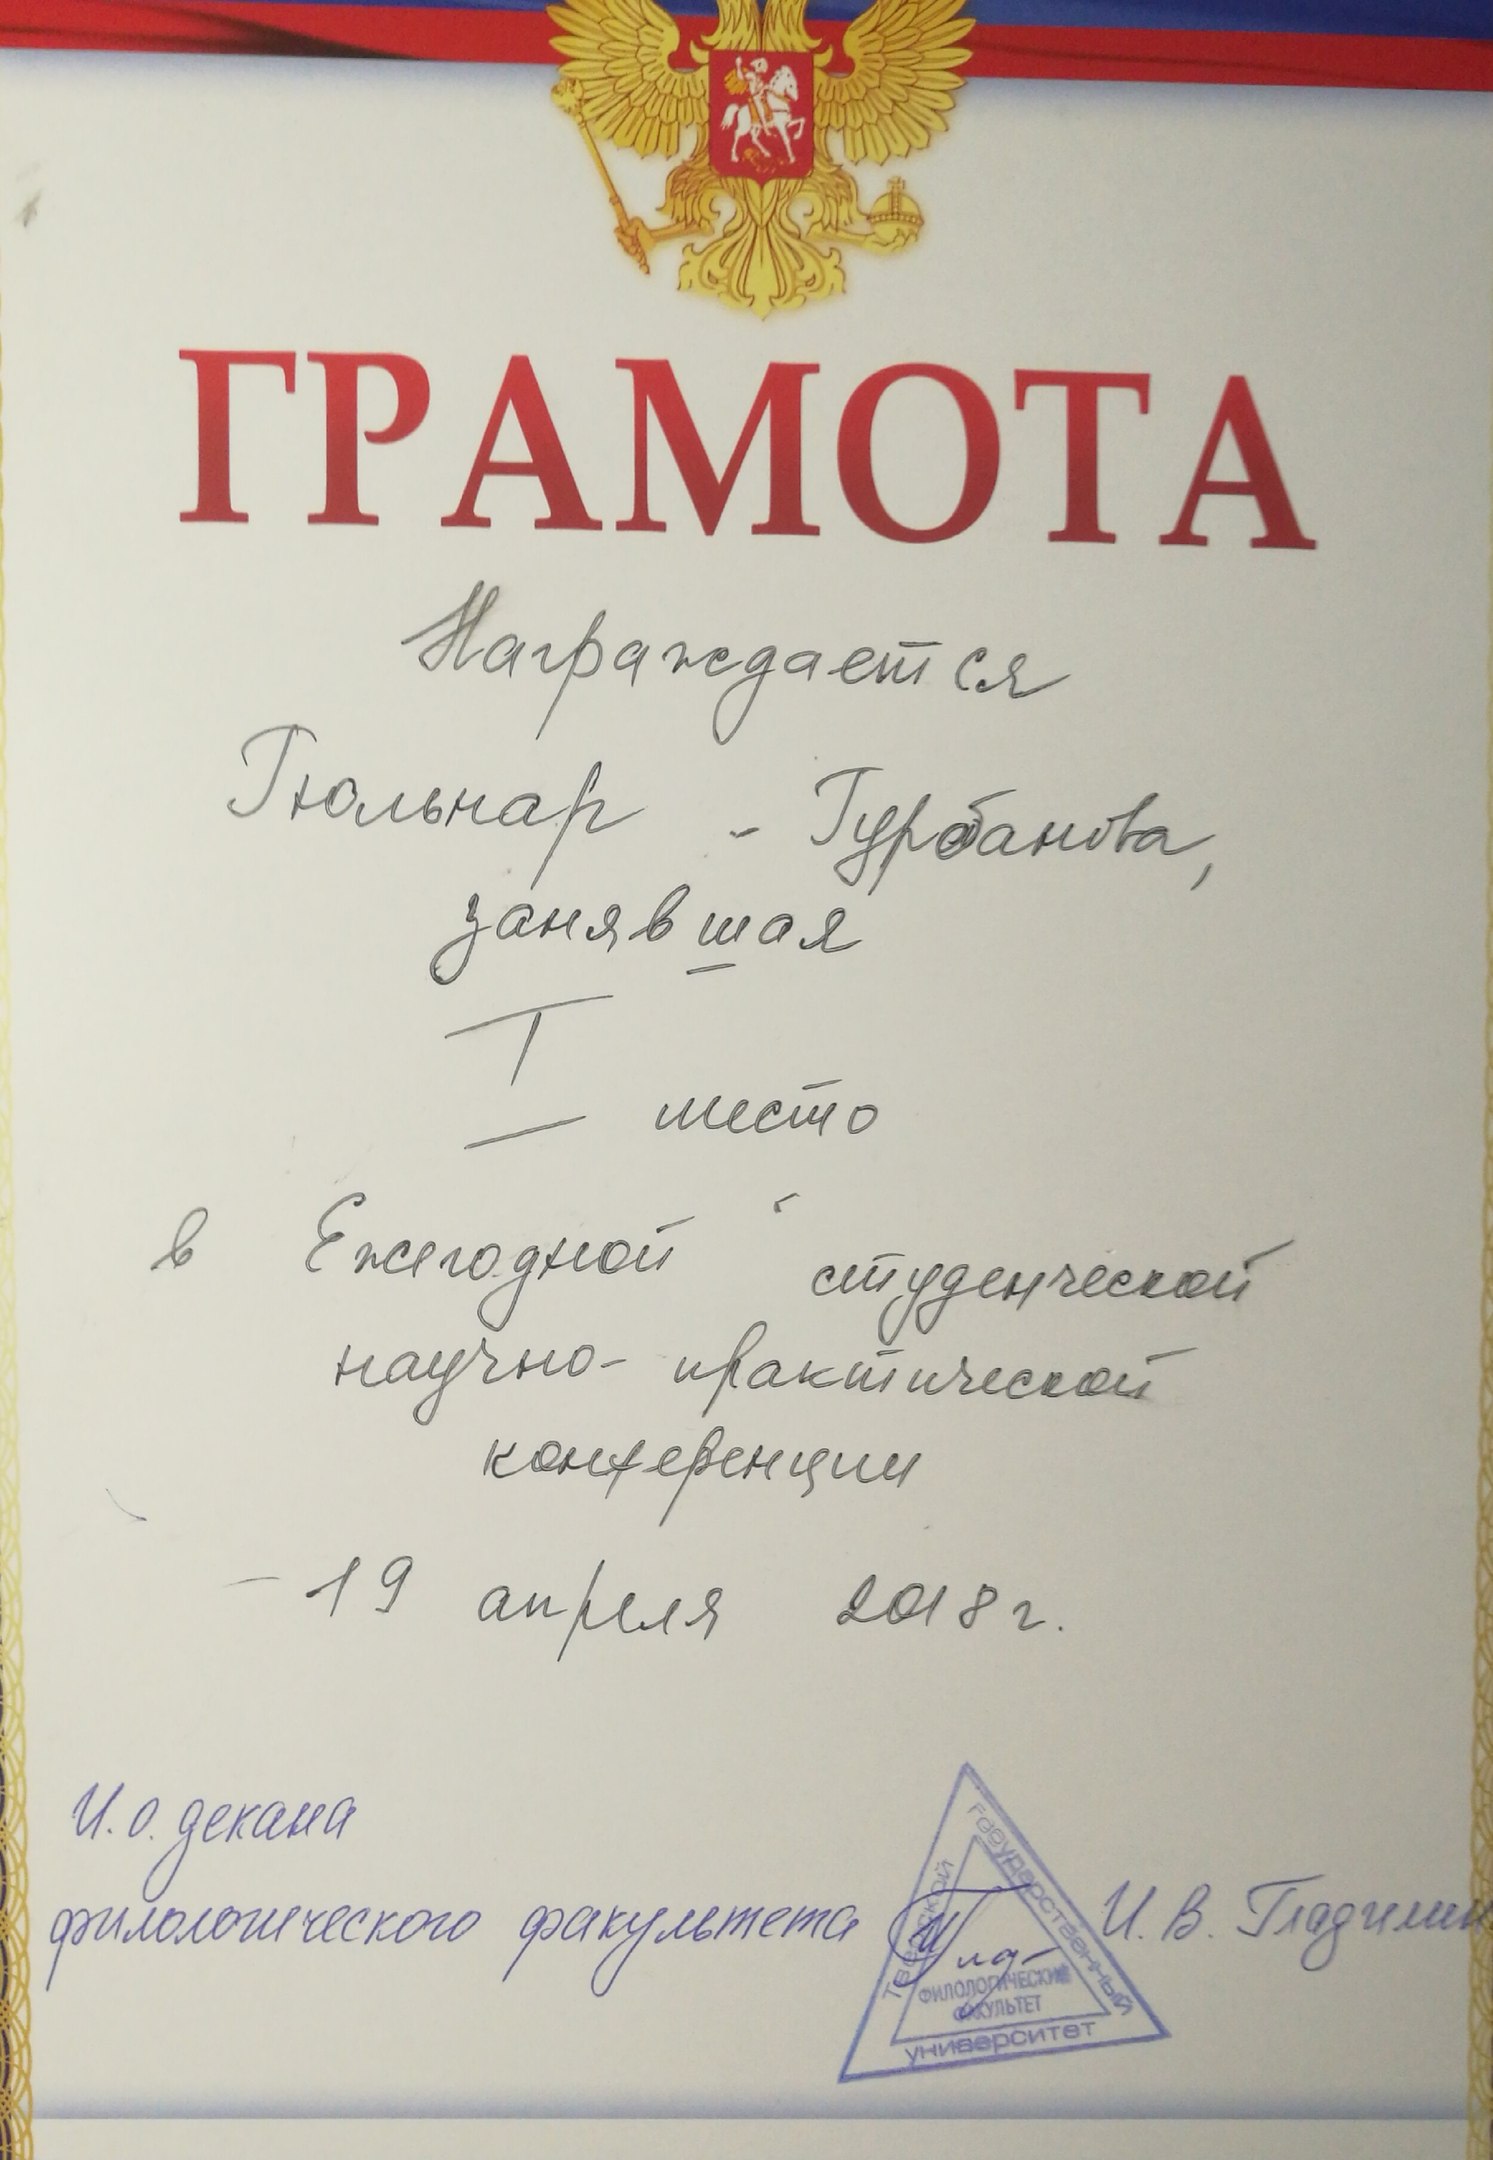 ГРАМОТА
Награждается
Гюльнар - Гурбанова,
занявшая
I место
в Ежегодной студенческой
научно-практической
конференции
- 19 апреля 2018 г.
И.о. декана
филологического факультета И.В. Гладилин
Тверской
государственный
университет
ФИЛОЛОГИЧЕСКИЙ
ФАКУЛЬТЕТ